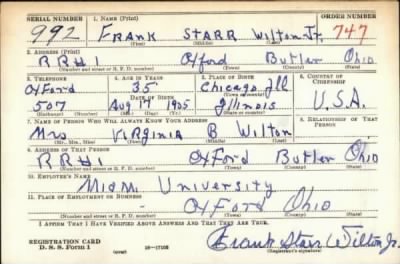 SERIAL NUMBER 1. NAME (Print) ORDER NUMBER
992 FRANK STARR Wilton Jr. 747
(First) (Middle) (Last)
2. ADDRESS (Print)
RR#1 Oxford Butler Ohio
(Number and street or R. F. D. number) (Town) (County) (State)
3. TELEPHONE 4. AGE IN YEARS 5. PLACE OF BIRTH 6. COUNTRY OF CITIZENSHIP
Oxford 35 Chicago Ill
DATE OF BIRTH
507 Aug 17 1905 Illinois U.S.A.
(Exchange) (Number) (Mo.) (Day) (Yr.) (State or country)
7. NAME OF PERSON WHO WILL ALWAYS KNOW YOUR ADDRESS 8. RELATIONSHIP OF THAT PERSON
Mrs Virginia B Wilton
(Mr., Mrs., Miss) (First) (Middle) (Last)
9. ADDRESS OF THAT PERSON
RR#1 Oxford Butler Ohio
(Number and street or R. F. D. number) (Town) (County) (State)
10. EMPLOYER'S NAME
Miami University
11. PLACE OF EMPLOYMENT OR BUSINESS
Oxford Ohio
(Number and street or R. F. D. number) (Town) (County) (State)
I AFFIRM THAT I HAVE VERIFIED ABOVE ANSWERS AND THAT THEY ARE TRUE.
REGISTRATION CARD
D. S. S. Form 1 (over) 16—17105 Frank Starr Wilton Jr.
(Registrant's signature)